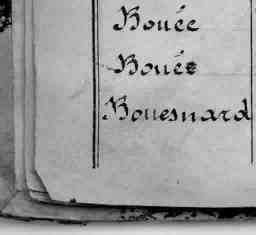 Bouée
Bouée
Bouesnard